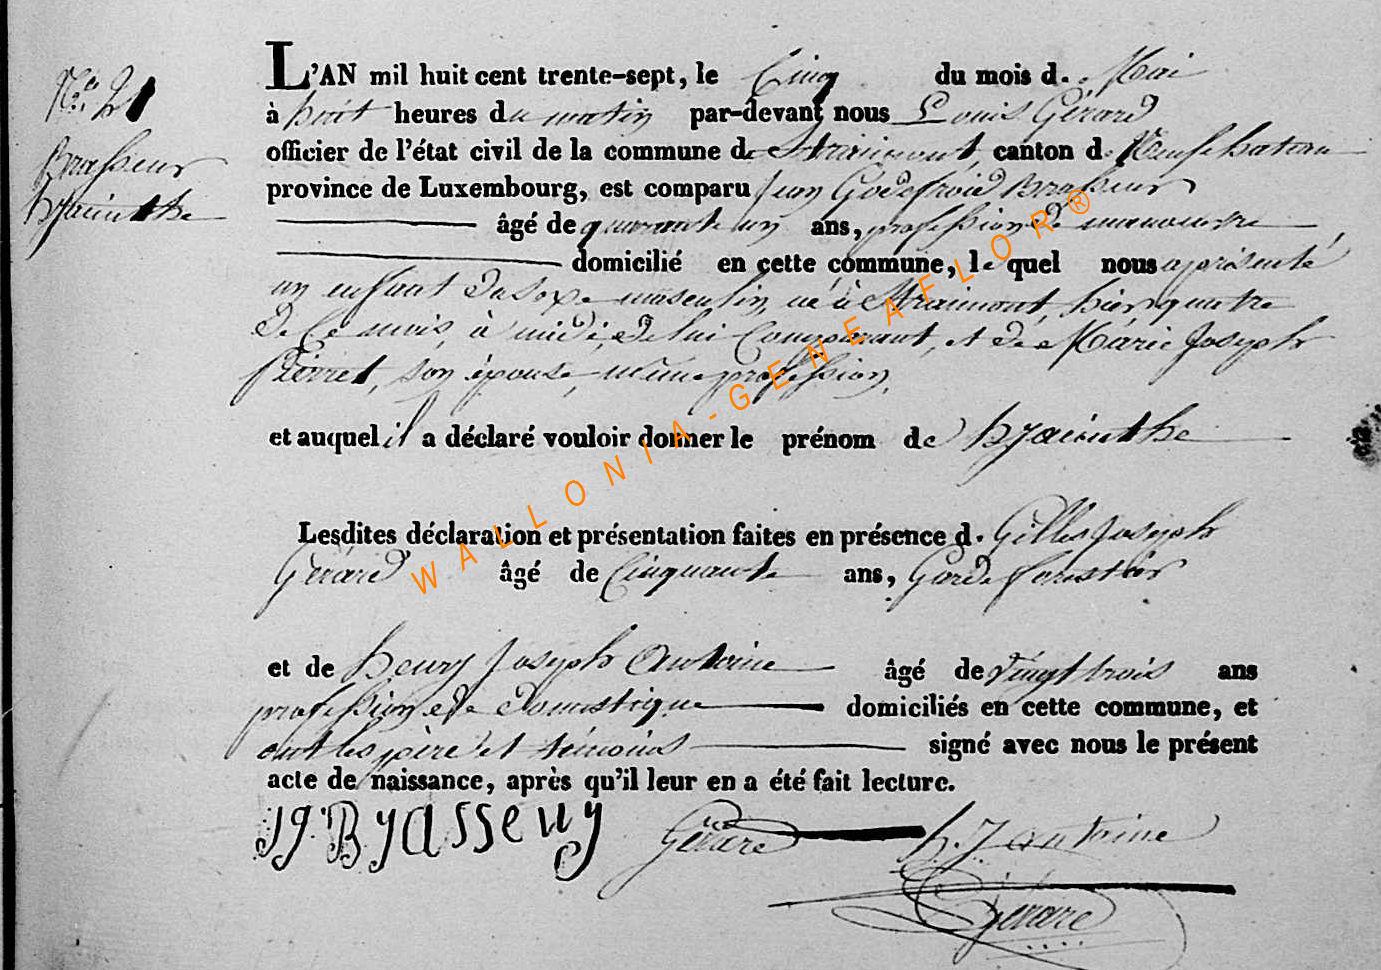 N.° 21
Brasseur
hyacinthe
L'AN mil huit cent trente-sept, le Cinq du mois d. Mai
à huit heures du matin par-devant nous Louis Gérard
officier de l'état civil de la commune de Straimont, canton de Neufchateau
province de Luxembourg, est comparu Jean Godefroid Brasseur
âgé de quarante un ans, profession de manoeuvre,
domicilié en cette commune, le quel nous a présenté
un enfant du sexe masculin, né à Straimont, hier quatre
de ce mois, à midi, de lui Comparant, et de Marie Joseph
Pierret, son épouse, même profession,
et auquel il a déclaré vouloir donner le prénom de hyacinthe
Lesdites déclaration et présentation faites en présence d. Gilles Joseph
Gérard âgé de Cinquante ans, Garde forestier
et de henry Joseph Antoine âgé de vingt trois ans
profession de domestique domiciliés en cette commune, et
ont les père et témoins signé avec nous le présent
acte de naissance, après qu'il leur en a été fait lecture.
jg. Brasseur Gérard h. J. antoine
Gérard
WALLONIA-GENEAFLOR®